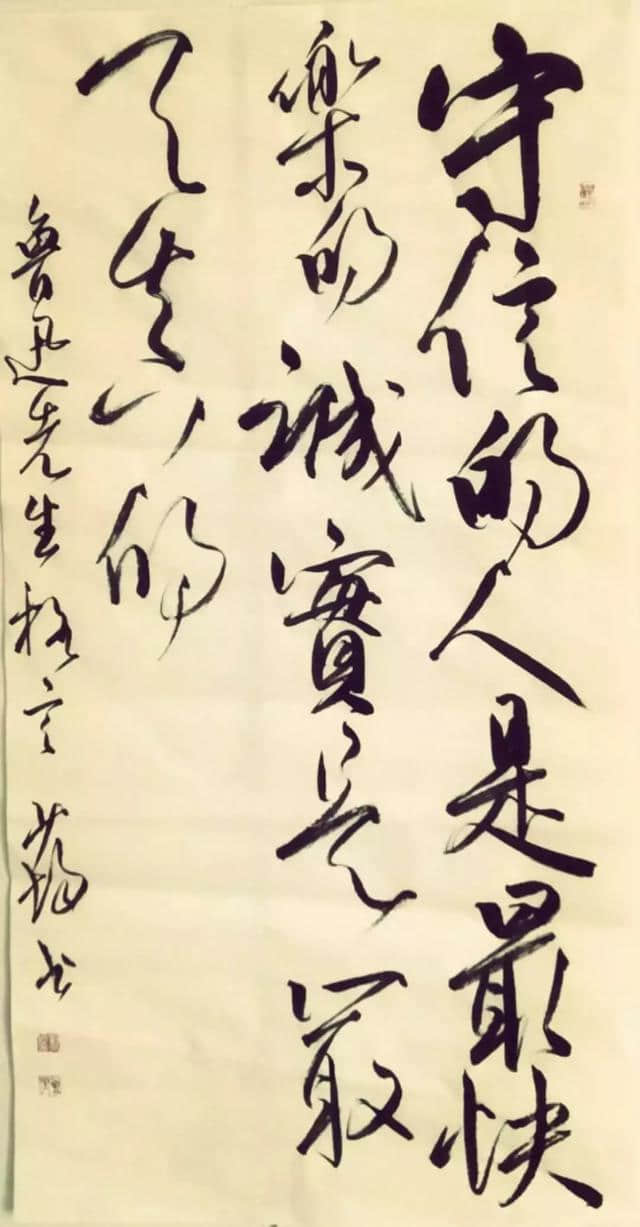 守信的人是最快
樂的誠實是最
天真的
魯迅先生格言 書